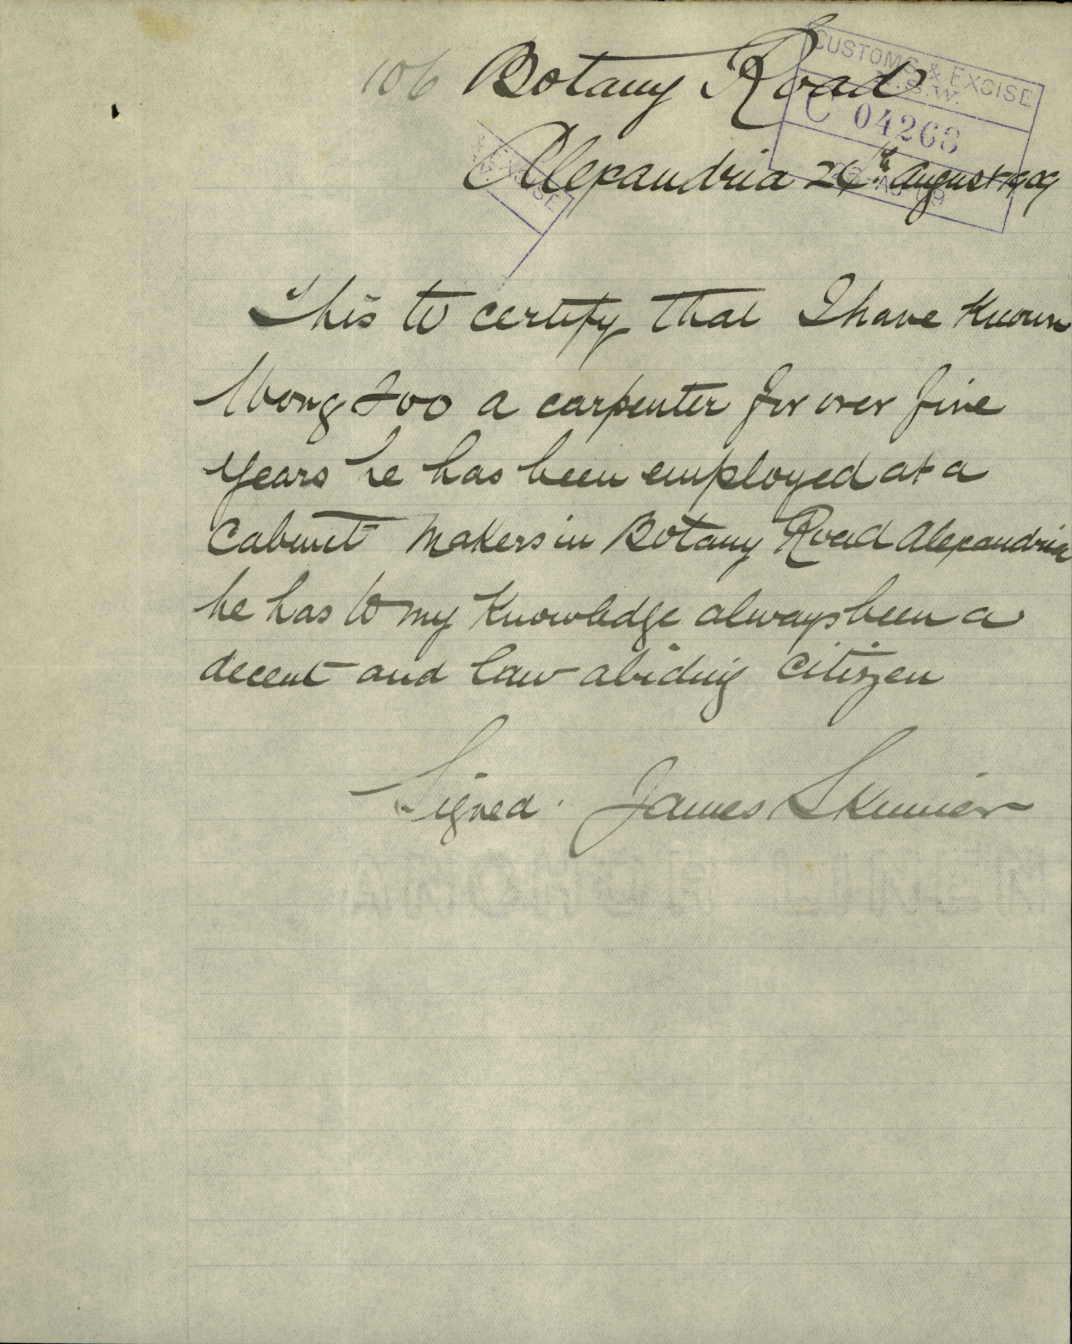 106 Botany Road
Alexandria 24th August 1909
CUSTOMS & EXCISE
N.S.W.
C 04263
EXCISE
This to certify that I have Known
Wong Foo a carpenter for over five
years he has been employed at a
Cabinet Makers in Botany Road Alexandria
he has to my Knowledge always been a
decent and law abiding Citizen
Signed. James Skinner